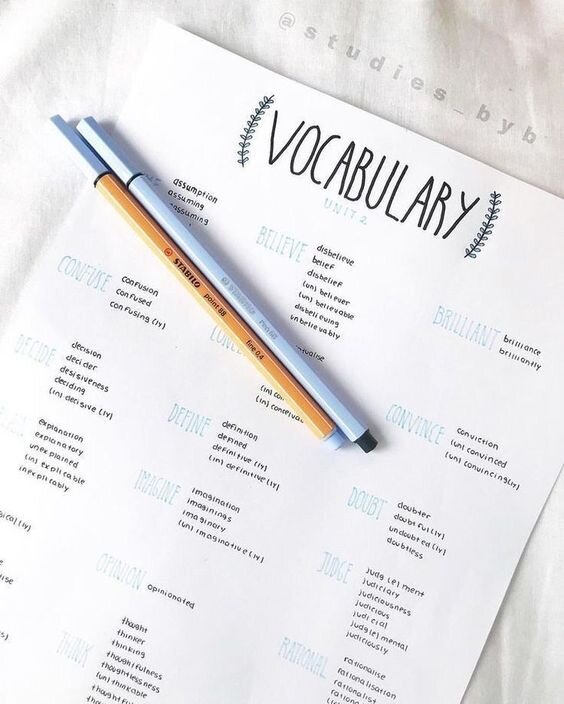 @studies_byb
VOCABULARY
UNIT 2
assumption
assuming
assuming
BELIEVE
disbelieve
belief
disbelief
(un) believer
(un) believable
disbelieving
unbelievably
BRILLIANT
brilliance
brilliantly
CONFUSE
confusion
confused
confusing (ly)
CONVINCE
conviction
(un) convinced
(un) convincing (ly)
DECIDE
decision
decider
desisiveness
deciding
(in) decisive (ly)
DEFINE
definition
defined
definitive (ly)
(in) definitive (ly)
explanation
explanatory
unexplained
(in) explicable
inexplicably
IMAGINE
imagination
imaginings
imaginary
(un) imaginative (ly)
DOUBT
doubter
doubtful (ly)
undoubted (ly)
doubtless
JUDGE
judg (e) ment
judiciary
judiciousness
judicious
judicial
judg (e) mental
judiciously
OPINION
opinionated
THINK
thought
thinker
thinking
thoughtfulness
thoughtlessness
(un) thinkable
thoughtful
RATIONAL
rationalise
rationalisation
rationalist
STABILO point 88 fine 0,4